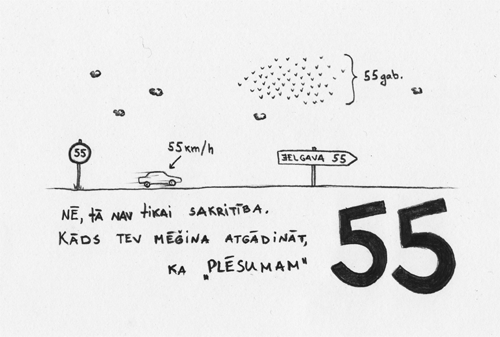 55 gab.
55
55 KM/H
JELGAVA 55
NĒ, tĀ NAV tikai SAKRITĪBA.
KĀDS TEV MĒĢINA ATGĀDINĀT,
KA „PLĒSUMAM"
55